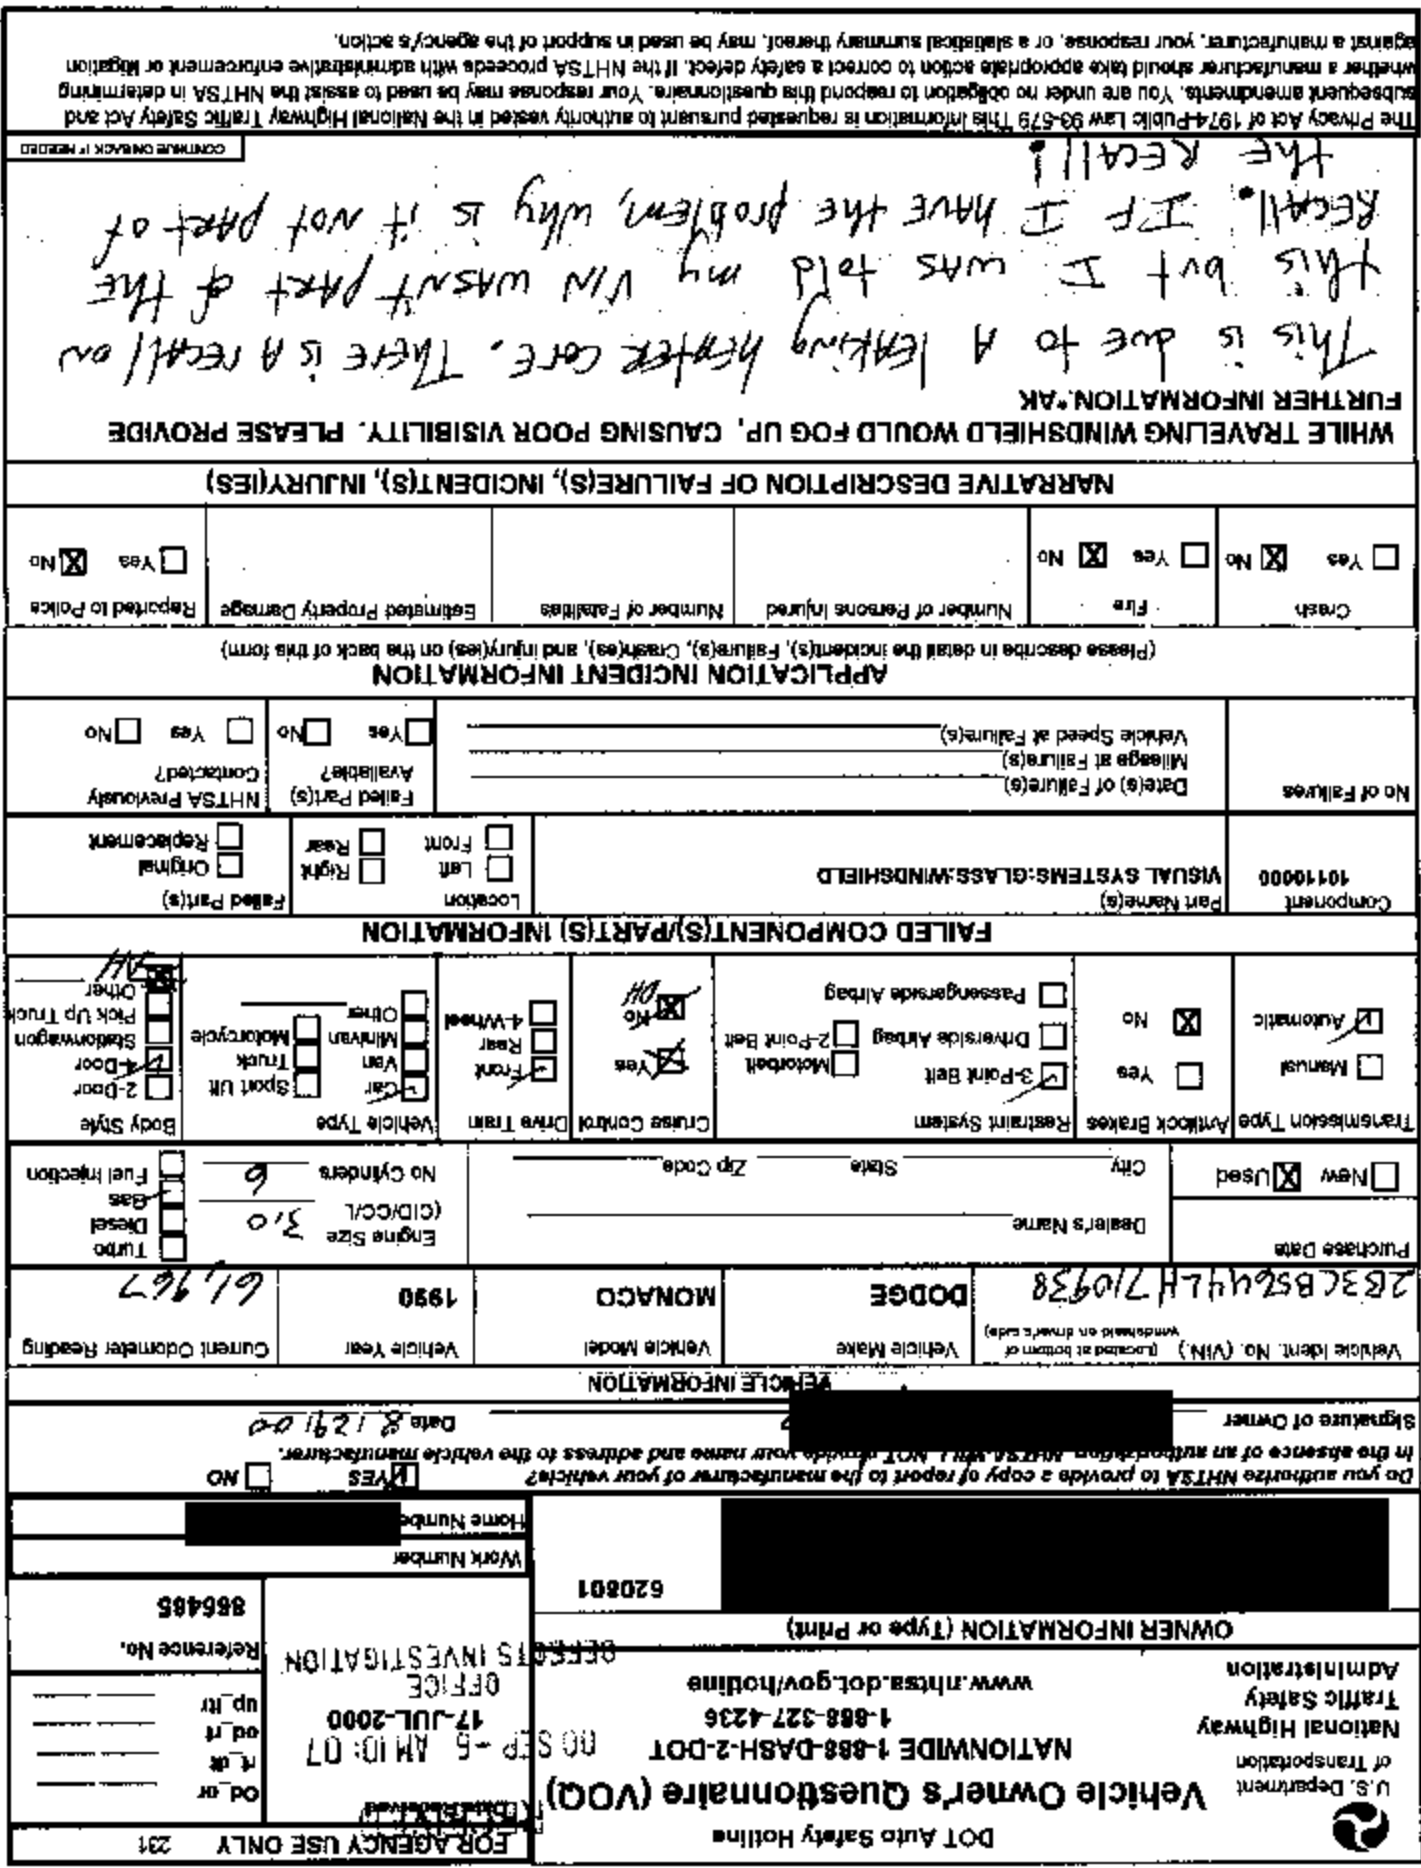 U.S. Department
of Transportation
National Highway
Traffic Safety
Administration
DOT Auto Safety Hotline
Vehicle Owner's Questionnaire (VOQ)
NATIONWIDE 1-888-DASH-2-DOT
1-888-327-4236
www.nhtsa.dot.gov/hotline
FOR AGENCY USE ONLY 231
Date Received
00 SEP -6 AM 10: 07
17-JUL-2000
OFFICE
DEFECTS INVESTIGATION
Od_or
rt_dt
od_rt
up_ltr
Reference No.
866465
OWNER INFORMATION (Type or Print)
620801
Work Number
Home Number
Do you authorize NHTSA to provide a copy of report to the manufacturer of your vehicle? YES NO
In the absence of an authorization, NHTSA WILL NOT provide your name and address to the vehicle manufacturer.
Signature of Owner Date 8 / 29 / 00
VEHICLE INFORMATION
Vehicle Ident. No. (VIN.) (Located at bottom of windshield on driver's side)
2B3CB5644LH710938
Vehicle Make
DODGE
Vehicle Model
MONACO
Vehicle Year
1990
Current Odometer Reading
61,967
Purchase Date
New X Used
Dealer's Name
City State Zip Code
Engine Size (CID/CC/L 3.0
No Cylinders 6
Turbo
Diesel
Gas
Fuel Injection
Transmission Type
Manual
Automatic
Antilock Brakes
Yes
X No
Restraint System
3-Point Belt
Driverside Airbag
Passengerside Airbag
Motorbelt
2-Point Belt
Cruise Control
Yes
X No
DH
Drive Train
Front
Rear
4-Wheel
Vehicle Type
Car
Van
Minivan
Other
Sport Utl
Truck
Motorcycle
Body Style
2-Door
4-Door
Stationwagon
Pick Up Truck
Other
FAILED COMPONENT(S)/PART(S) INFORMATION
Component
10110000
Part Name(s)
VISUAL SYSTEMS:GLASS:WINDSHIELD
Location
Left Right
Front Rear
Failed Part(s)
Original
Replacement
No of Failures
Date(s) of Failure(s)
Mileage at Failure(s)
Vehicle Speed at Failure(s)
Failed Part(s)
Available?
Yes No
NHTSA Previously
Contacted?
Yes No
APPLICATION INCIDENT INFORMATION
(Please describe in detail the incident(s), Failure(s), Crash(es), and injury(ies) on the back of this form)
Crash
Yes X No
Fire
Yes X No
Number of Persons Injured
Number of Fatalities
Estimated Property Damage
Reported to Police
Yes X No
NARRATIVE DESCRIPTION OF FAILURE(S), INCIDENT(S), INJURY(IES)
WHILE TRAVELING WINDSHIELD WOULD FOG UP, CAUSING POOR VISIBILITY. PLEASE PROVIDE
FURTHER INFORMATION.*AK
This is due to A leaking heater core. There is A recall on
this but I was told my VIN wasn't part of the
Recall. IF I have the problem, why is it not part of
the RECAll!
CONTINUE ON BACK IF NEEDED
The Privacy Act of 1974-Public Law 93-579 This information is requested pursuant to authority vested in the National Highway Traffic Safety Act and
subsequent amendments. You are under no obligation to respond to this questionnaire. Your response may be used to assist the NHTSA in determining
whether a manufacturer should take appropriate action to correct a safety defect. If the NHTSA proceeds with administrative enforcement or litigation
against a manufacturer, your response, or a statistical summary thereof, may be used in support of the agency's action.